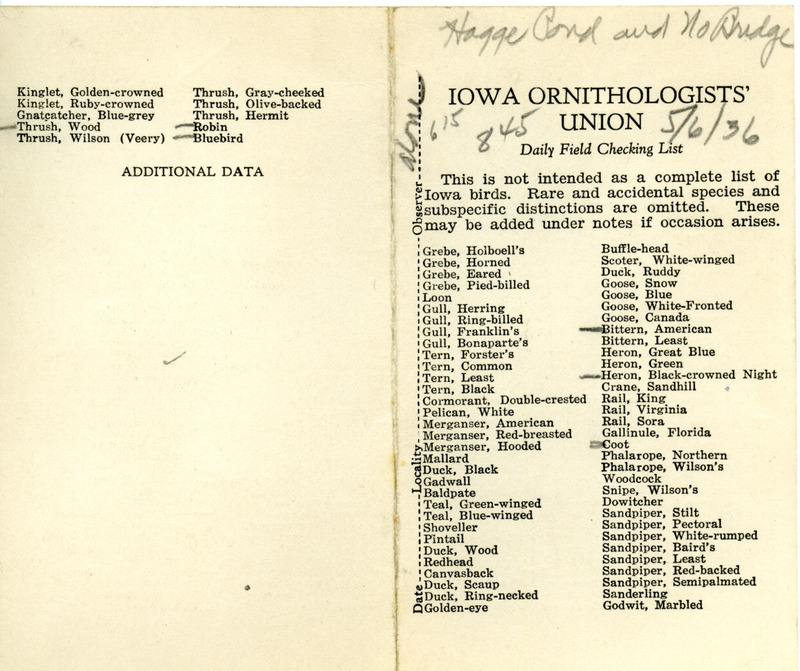 Kinglet, Golden-crowned
Kinglet, Ruby-crowned
Gnatcatcher, Blue-grey
Thrush, Wood
Thrush, Wilson (Veery)
Thrush, Gray-cheeked
Thrush, Olive-backed
Thrush, Hermit
Robin
Bluebird
ADDITIONAL DATA
Hagge Pond and No Bridge
IOWA ORNITHOLOGISTS'
UNION
6 15
8 45
5/6/36
Daily Field Checking List
alone
Date Locality Observer
This is not intended as a complete list of
Iowa birds. Rare and accidental species and
subspecific distinctions are omitted. These
may be added under notes if occasion arises.
Grebe, Holboell's
Grebe, Horned
Grebe, Eared
Grebe, Pied-billed
Loon
Gull, Herring
Gull, Ring-billed
Gull, Franklin's
Gull, Bonaparte's
Tern, Forster's
Tern, Common
Tern, Least
Tern, Black
Cormorant, Double-crested
Pelican, White
Merganser, American
Merganser, Red-breasted
Merganser, Hooded
Mallard
Duck, Black
Gadwall
Baldpate
Teal, Green-winged
Teal, Blue-winged
Shoveller
Pintail
Duck, Wood
Redhead
Canvasback
Duck, Scaup
Duck, Ring-necked
Golden-eye
Buffle-head
Scoter, White-winged
Duck, Ruddy
Goose, Snow
Goose, Blue
Goose, White-Fronted
Goose, Canada
Bittern, American
Bittern, Least
Heron, Great Blue
Heron, Green
Heron, Black-crowned Night
Crane, Sandhill
Rail, King
Rail, Virginia
Rail, Sora
Gallinule, Florida
Coot
Phalarope, Northern
Phalarope, Wilson's
Woodcock
Snipe, Wilson's
Dowitcher
Sandpiper, Stilt
Sandpiper, Pectoral
Sandpiper, White-rumped
Sandpiper, Baird's
Sandpiper, Least
Sandpiper, Red-backed
Sandpiper, Semipalmated
Sanderling
Godwit, Marbled